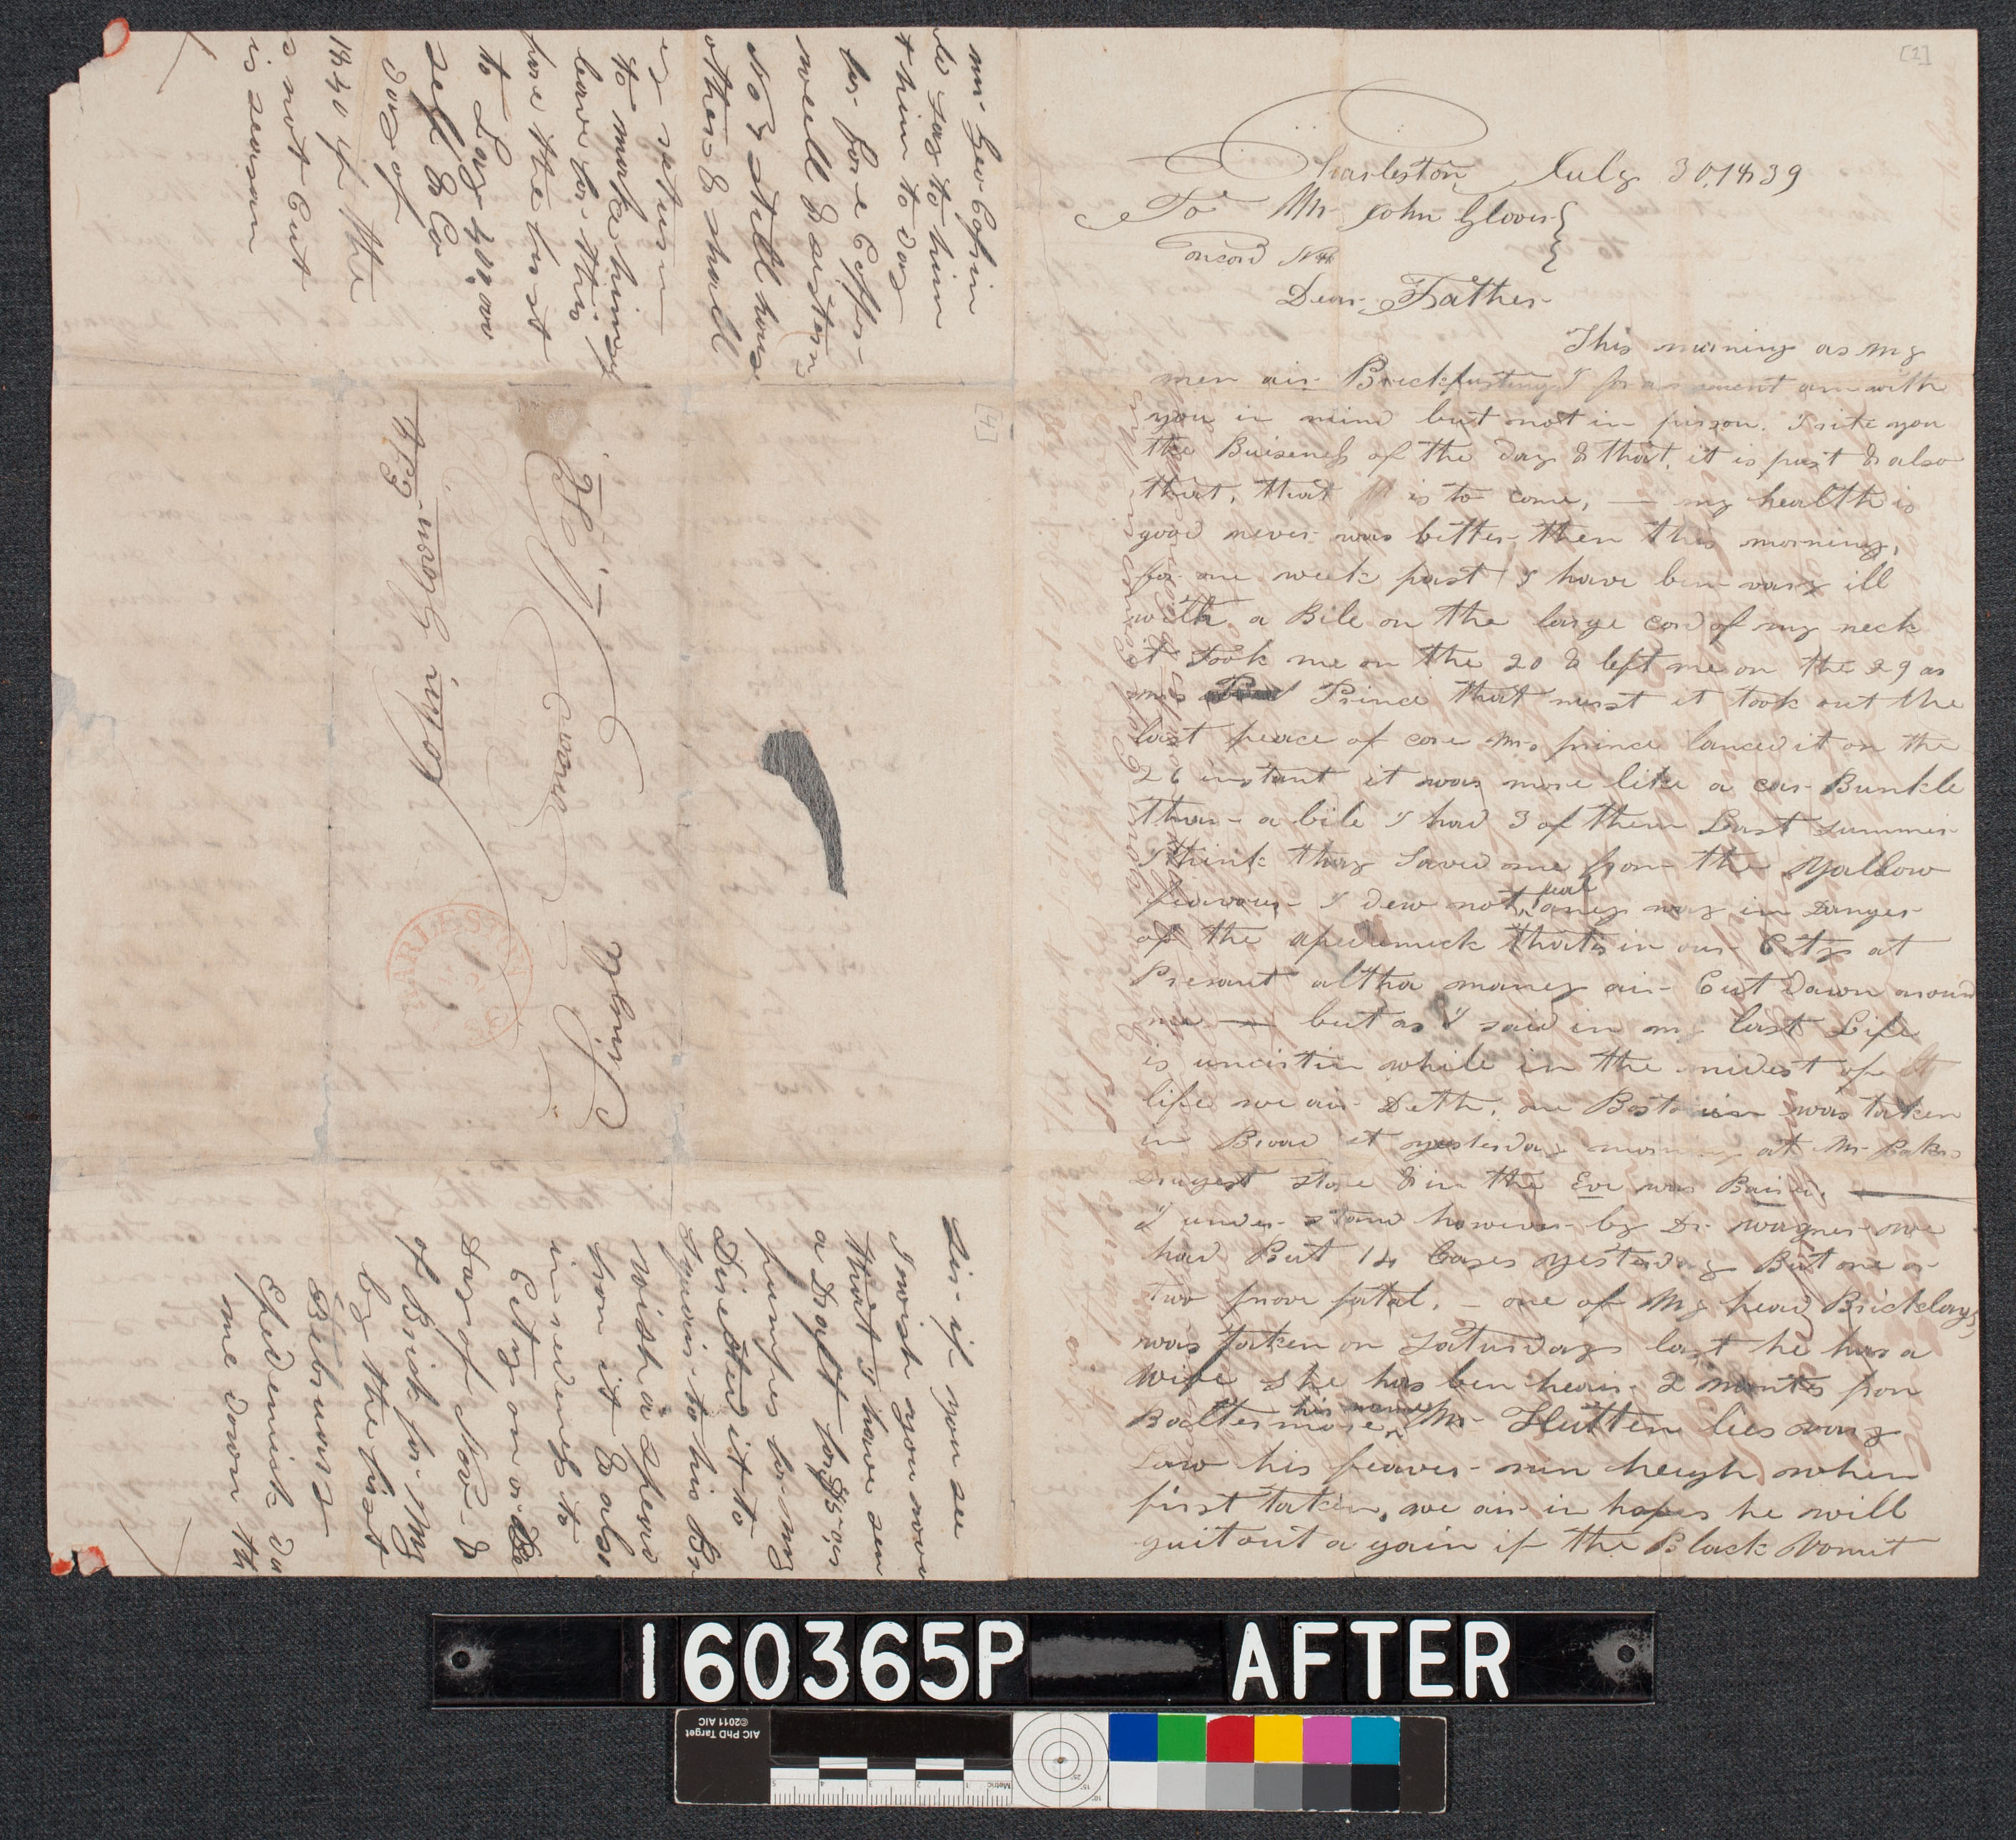 [1]
Charleston July 30, 1839
To Mr John Glover
Concord NH
Dear Father
This morning as my
men air Breckfusting I for a moment am with
you in mind but not in pirson. I rite you
the Buiseness of the Day & that, it is past & also
that, that is to come, — my health is
good never was better then this morning,
for one week past I have ben vary ill
with a Bile on the large cord of my neck
it Took me on the 20 & left me on the 29 as
mrs Prince that nurst it took out the
last peace of core Mrs prince lanced it on the
26 instant it was more like a car Bunkle
than a bile I had 3 of them Last summer
I think thay Saved me from the yallow
I dew not feal aney way in Danger
of the apedemick thats in our City at
Presant altho maney air Cut down around
me — but as I said in my last Life
is uncirtin while in the midest of
life we air Deth. one was taken
in Broad st yesterday morning at Mr
Drugest store & in the Eve was Buried.
I under stand however by Dr Wagner we
had But 14 Cases yesterday But one or
two prove fatal. — one of My head Bricklays
was taken on Saturday last he has a
Wife she has ben hear 2 months from
Baltermore, his name Mr Hutten lies vary
Law his feaver run heigh when
first taken, we air in hopes he will
git out a gain if the Black Vomit
[4]
John Glover Esq
Concord
N.H.
Single
CHARLESTON
Mr Geo Cofrin
say to him
him to day
for
well & cistern
No 3 still house
others & shall
return
to make himself
leave for this
fore the last
to Lay 400,000
self & Co
Days of
1840 if the
s not Cut
is season
Sir if you see
I wish you wou
that I have sen
a Draft for $500
pumpes for my
Directed it to
Squair to his Br
Wish a
hous it & also
in
City on or
Day of Nov &
of Brick for My
by the first
Februara
Epedemick Du
me down th
160365P AFTER
AIC PhD Target
©2011 AIC
Metric
1
2
3
4
5